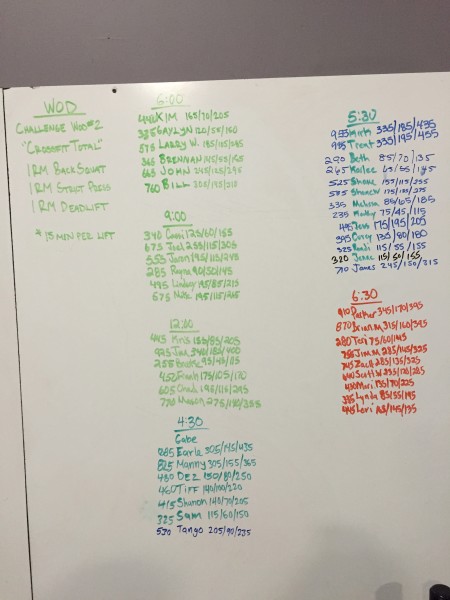 WOD
CHALLENGE WOD#2
"CROSSFIT TOTAL"
1RM BACK SQUAT
1RM STRICT PRESS
1RM DEADLIFT
*15 MIN PER LIFT
6:00
440 KIM 165/70/205
335 GAYLYN 120/55/160
575 LARRY W. 185/115/275
365 BRENNAN
665 JOHN 245/125/295
760 BILL
9:00
340
673 Joel 255/115/305
555 Jason 195/115/245
285 Rayna 90/50/145
495 Lindsay 195/85/215
575 195/115/265
12:00
445 Kris 155/85/205
925 Jim 340/185/400
255
450 Frank 175/105/170
605 Chad 195/115/295
770 Mason 275/140/355
4:30
Gabe
885 Earle 305/145/435
825 Manny 305/155/365
480 DEZ 150/80/250
460 TIFF 140/100/220
415 Shanon 140/70/205
325 Sam 115/60/150
530 Tango 205/90/235
5:30
955 335/185/435
985 Trent 335/195/455
290 Beth 85/70/135
265 Kailee
525 Shane 155/115/255
335 Melissa 85/65/185
235 75/45/115
495 75/195/205
395 Corey 135/80/180
325 115/55/155
320 115/50/155
710 James 245/150/315
6:30
910 Parker 345/170/395
870 Brian M. 315/160/395
280 Teri 75/60/145
755 Jim M. 285/145/325
745 Zach 285/135/325
640 Scott W. 235/120/285
430 Mari 135/70/225
335 Lynda 85/55/195
445 Lori